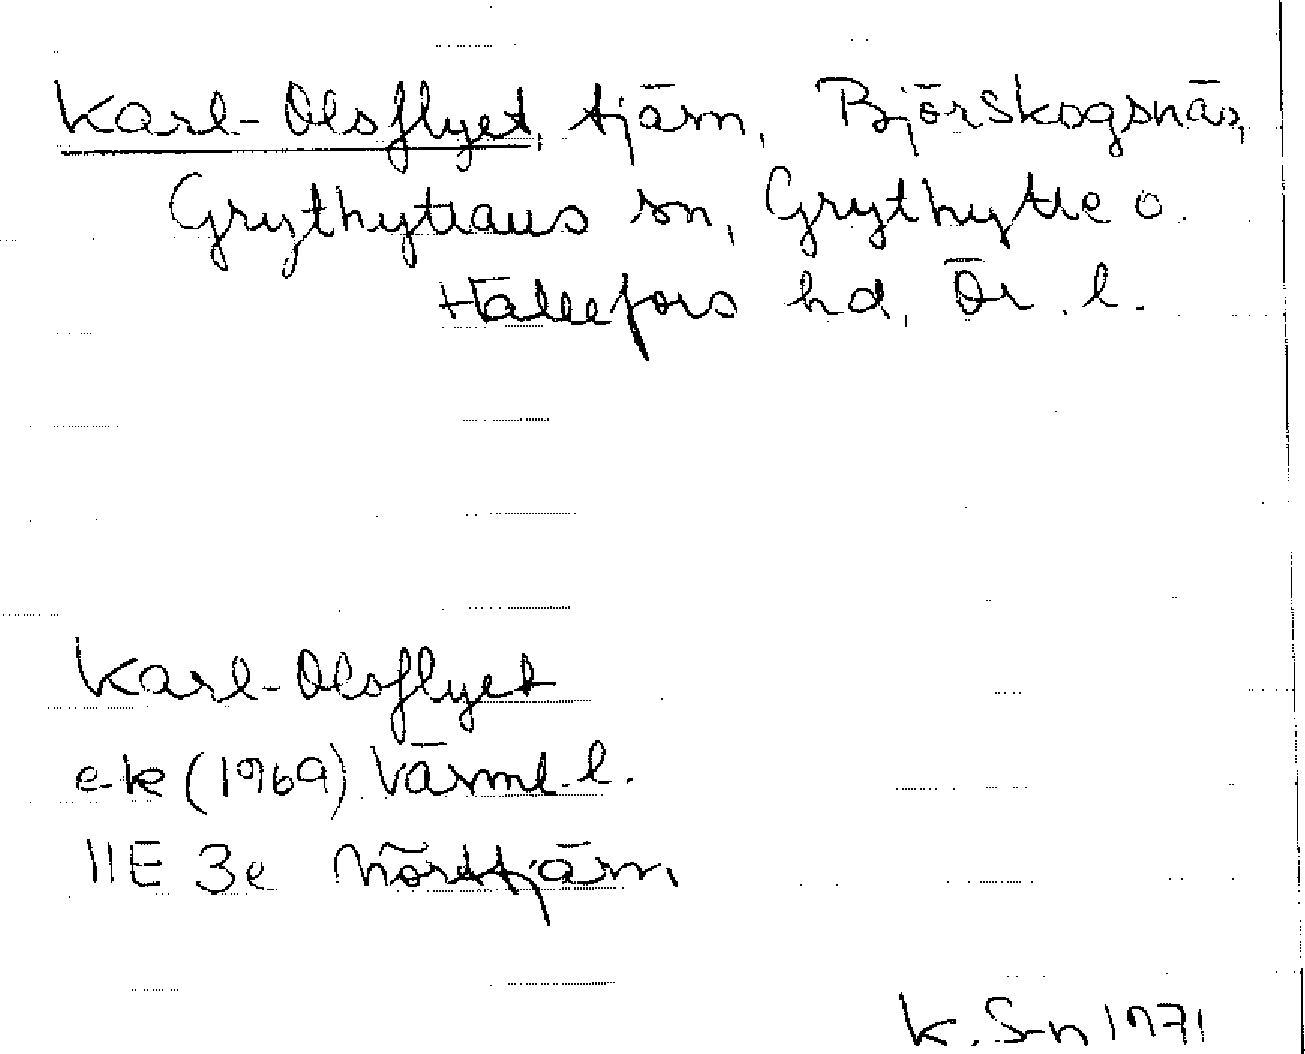 Karl-Olsflyet, tjärn, Björskogsnäs,
Grythyttans sn, Grythytte o.
Hällefors hd, Ör. l.
Karl-Olsflyet
e-k (1969) Värml. l.
11E 3e Mörttjärn
K. S-n 1971